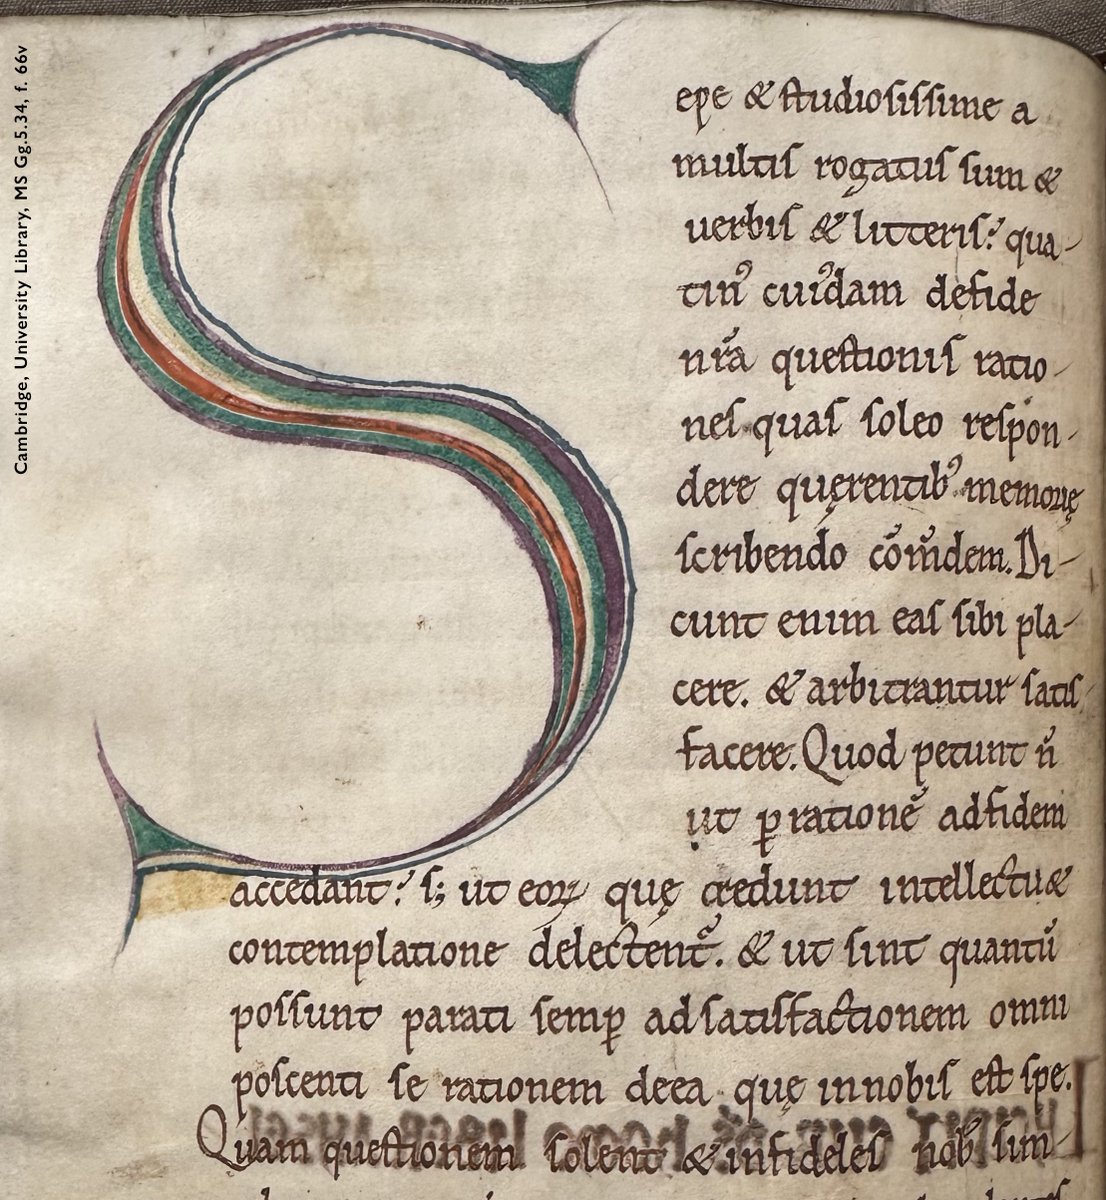 Cambridge, University Library, MS Gg.5.34, f. 66v
Sepe & studiosissime a
multis rogatus sum &
uerbis & litteris: qua-
tin᾽ cui᾽dam de fide
nr̃a questionis ratio-
nes quas soleo respon-
dere quęrentib᾽ memorię
scribendo cōm̄dem. Di-
cunt enim eas sibi pla-
cere. & arbitrantur satis
facere. Quod petunt n̄
ut ꝑ rationē ad fidem
accedant: s; ut eoꝝ quę credunt intellectu &
contemplatione delectent᾽. & ut sint quantū
possunt parati semꝑ ad satisfactionem omni
poscenti se rationem de ea quę in nobis est spe.
Quam questionem solent & infideles nob᾽ sim-